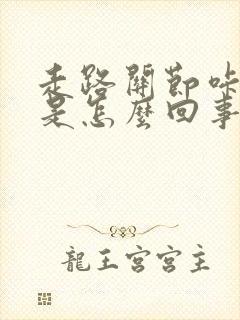 走路關節咔
是怎麼回事
龍王宮宮主